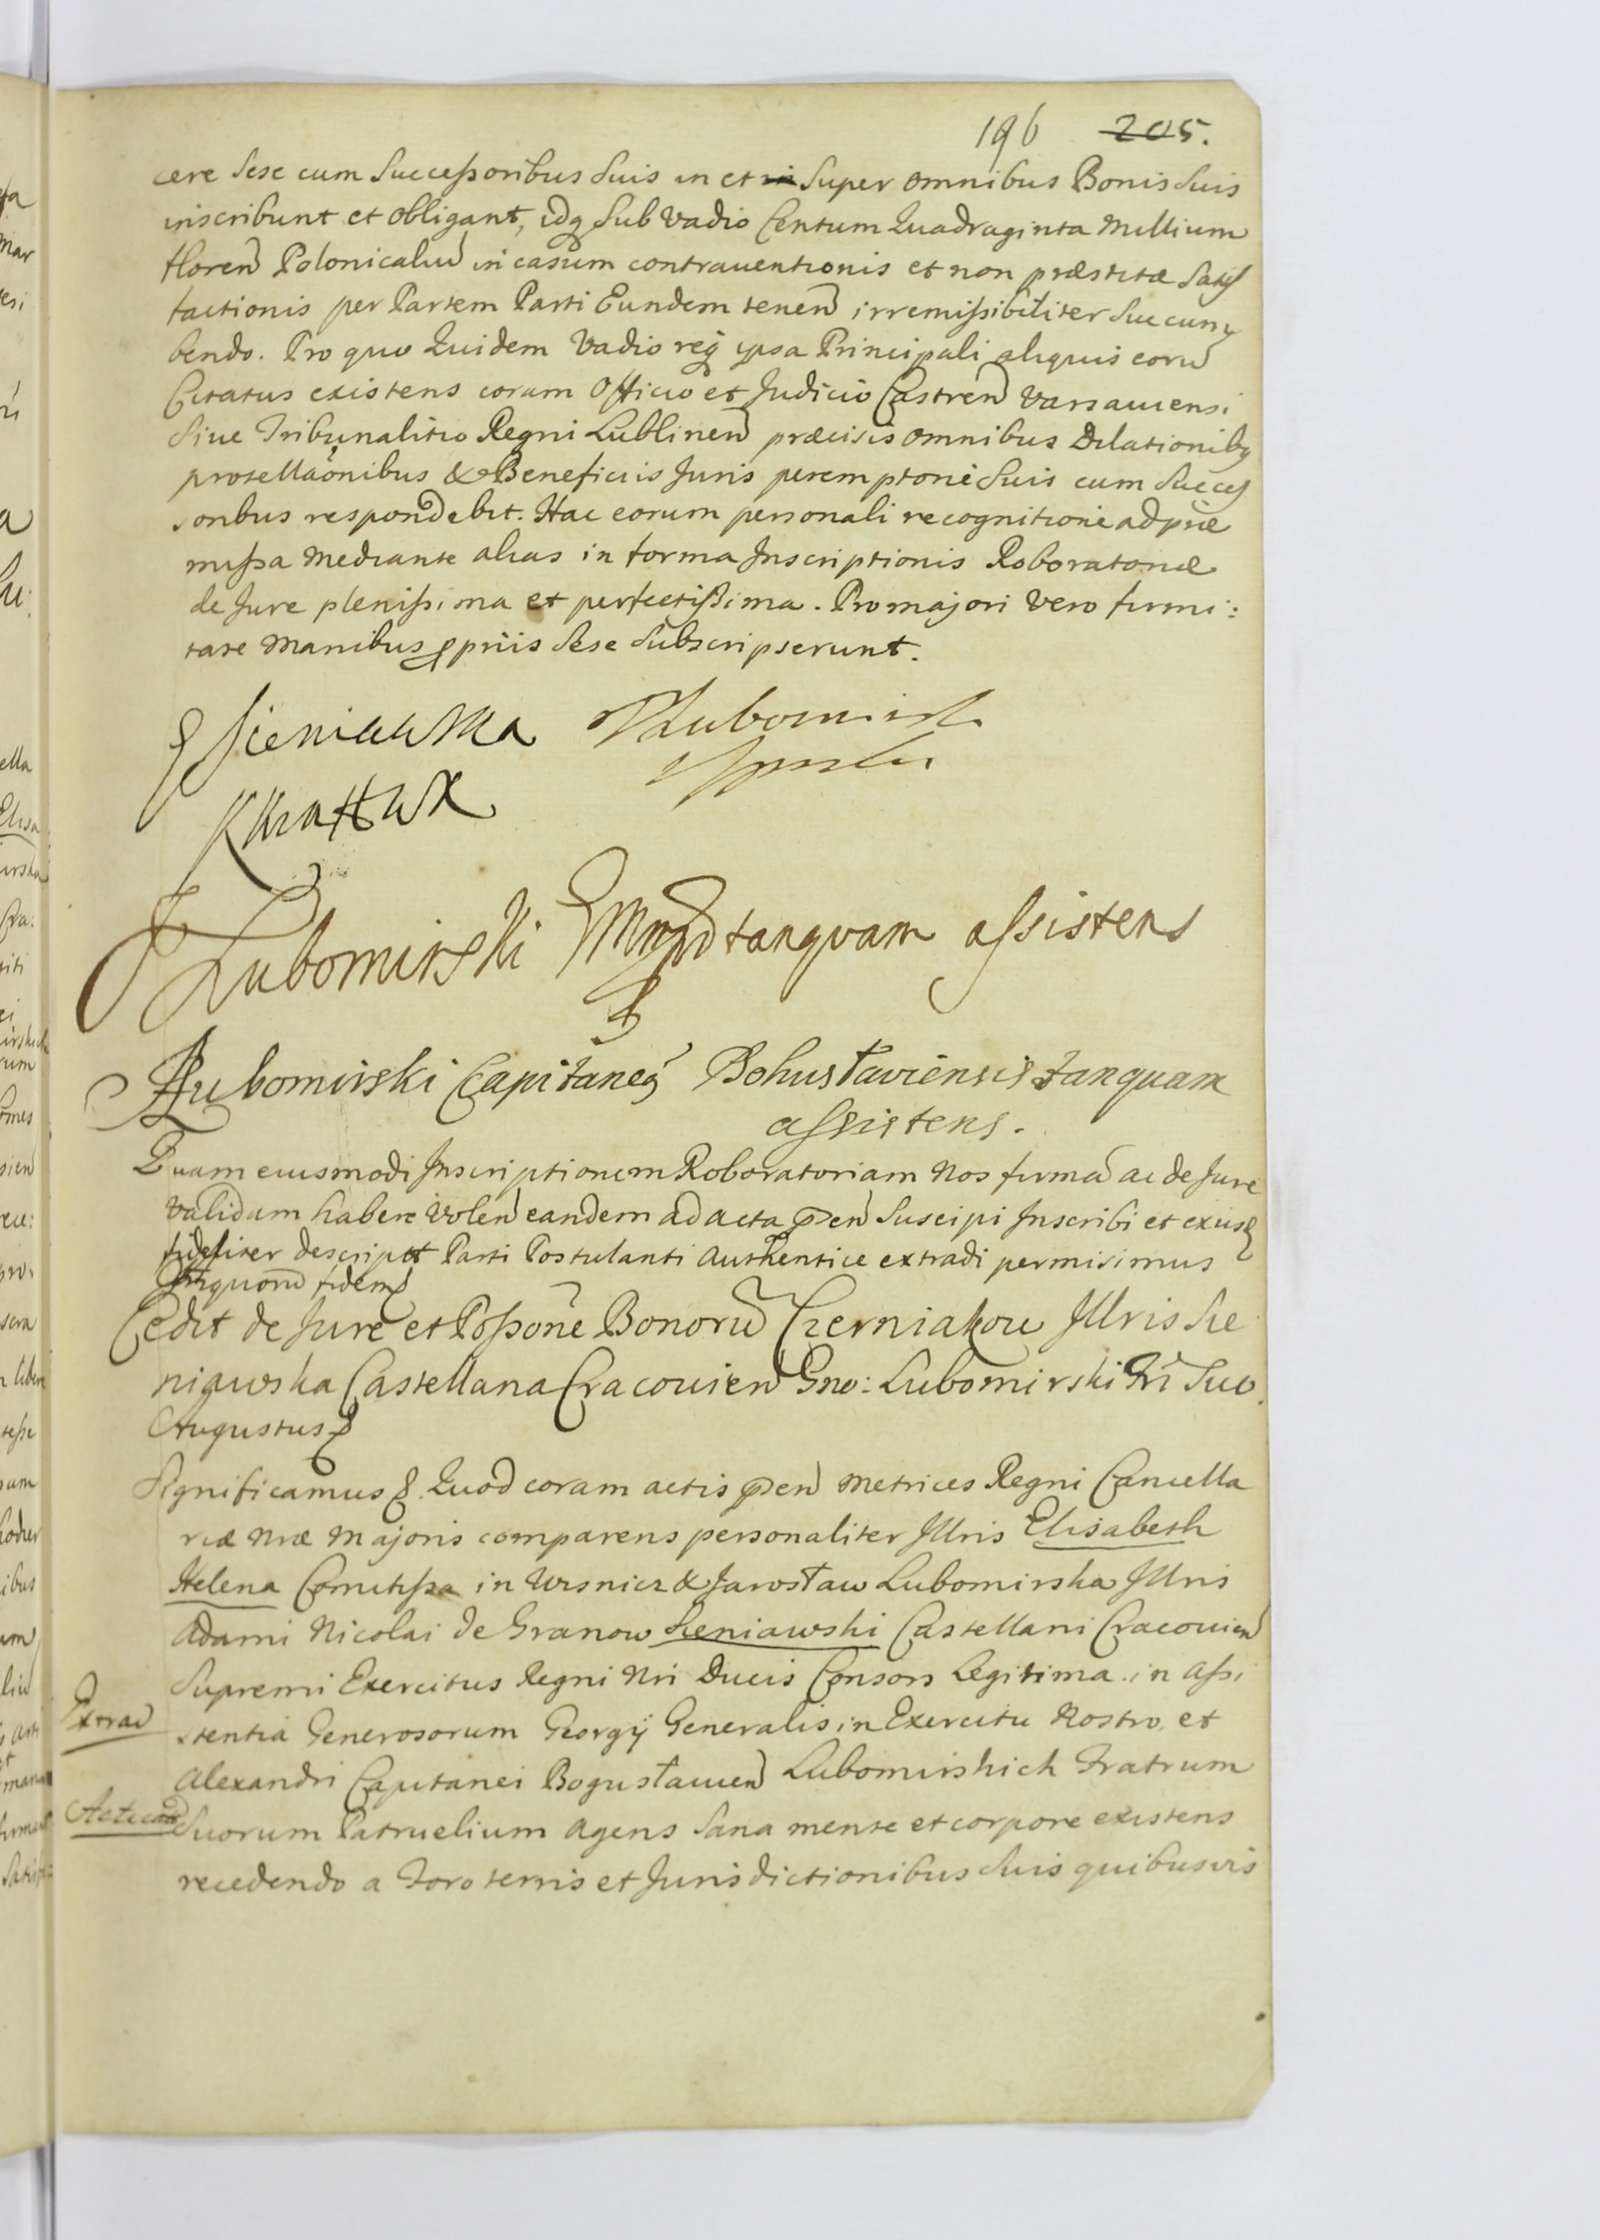 196 205.
cere Sese cum Successoribus Suis in et in Super omnibus Bonis Suis
inscribunt et obligant, idq Sub Vadio Centum Quadraginta Millium
floren Polonicaliu in casum contrauentionis et non præstitæ Satis
factionis per Partem Parti Eundem tenen irremissibiliter Succum
bendo. Pro quo Quidem Vadio req ipsa Principali aliquis eoru
Citatus existens coram Officio et Judicio Castren Varsauiensi
Siue Tribunalitio Regni Lublinen præcisis omnibus Dilationibq
protellaonibus & Beneficiis Juris peremptorie Suis cum Succes
soribus respondebit. Hac eorum personali recognitione ad præ
missa Mediante alias in forma Inscriptionis Roboratoriæ
de Jure plenissima et perfectissima. Pro majori Vero firmi:
tate Manibus ppriis Sese Subscripserunt.
E Sieniawska Lubomirsk
K Kra
Lubomirski tanqvam assistens
Lubomirski Capitaneq Bohusłaviensis tanquam
assistens.
Quam eiusmodi Inscriptionem Roboratoriam Nos firma ac de Jure
Validam habere Volen eandem ad acta pen Suscipi Inscribi et exus
fideliter descript Parti Postulanti Authentice extradi permisimus
Inquoru fidem
Cedit de Jure et Possone Bonoru Czerniakow Jllris Sie
niawska Castellana Cracouien Gno: Lubomirski Fri Suo.
Augustus
Significamus Quod coram actis pen Metrices Regni Cancella
riæ Nræ Majoris comparens personaliter Jllris Elisabeth
Helena Comitissa in Wisnicz & Jarosław Lubomirska Jllris
Adami Nicolai de Granow Sieniawski Castellani Cracouien
Supremi Exercitus Regni Nri Ducis Consors Legitima in Assi
Extrad
stentia Generosorum Georgij Generalis in Exercitu Nostro et
Alexandri Capitanei Bogusłauien Lubomirskich Fratrum
Acticad
Suorum Patruelium agens Sana mente et corpore existens
recedendo a Foro terris et Jurisdictionibus Suis quibusvis